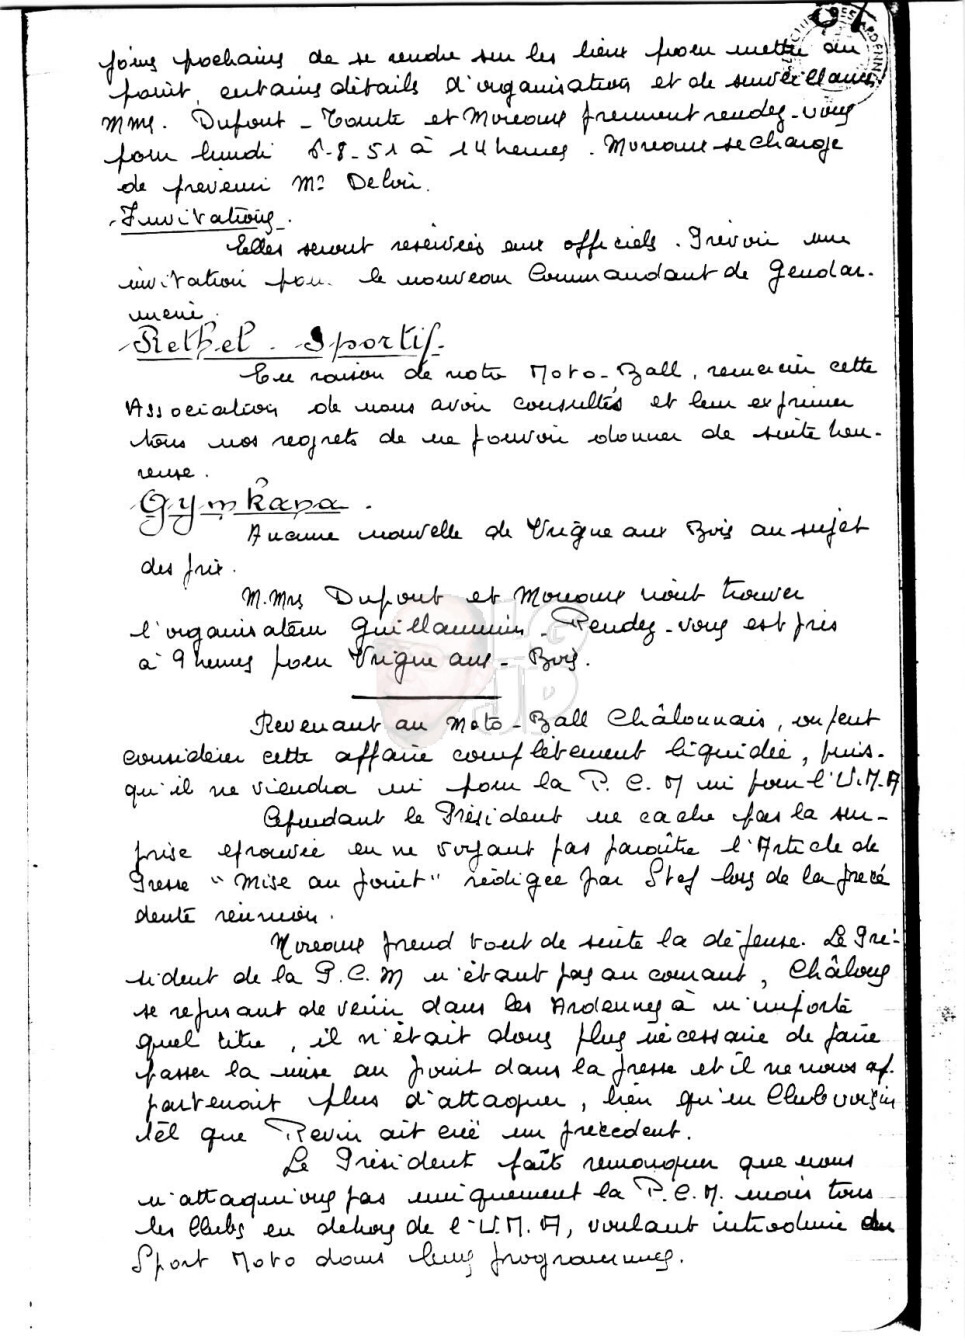 jours pochains de se rendre sur les lieux pour mettre au
point, certains détails d'organisation et de surveillance,
Mms. Dupont - Comte et Moreaux prennent rendez-vous
pour lundi 6-8-51 à 14 heures. Moreaux se charge
de prévenir Mr
Invitations.
Elles seront réservées aux officiels. Prévoir une
invitation pour le nouveau Commandant de Gendar-
merie.
Rethel - Sportif.
En raison de notre Moto-Ball, remercier cette
Association de nous avoir consultés et leur exprimer
tous nos regrets de ne pouvoir donner de suite heu-
reuse.
Gymkana.
Aucune nouvelle de Vrigne aux Bois au sujet
des prix.
M.Mrs Dupont et Moreaux vont trouver
l'organisateur Guillaumin. Rendez-vous est pris
à 9 heures pour Vrigne aux-Bois.
Revenant au Moto-Ball Châlonnais, on peut
considérer cette affaire complètement liquidée, puis-
qu'il ne viendra ni pour la P.C.M ni pour l'U.M.A
Cependant le Président ne cache pas la sur-
prise éprouvée en ne voyant pas paraître l'Article de
Presse "Mise au point" rédigée par Stef lors de la précé
dente réunion.
Moreaux prend tout de suite la défense. Le Pré-
sident de la P.C.M n'étant pas au courant, Châlons
se refusant de venir dans les Ardennes à n'importe
quel titre, il n'était donc plus nécessaire de faire
passer la mise au point dans la presse et il ne nous ap.
partenait plus d'attaquer, bien qu'un Club voisin
tel que Revin ait créé un précédent.
Le Président fait remarquer que nous
n'attaquions pas uniquement la P.C.M. mais tous
les Clubs en dehors de l'U.M.A, voulant introduire du
Sport Moto dans leurs programmes.
LG
JD